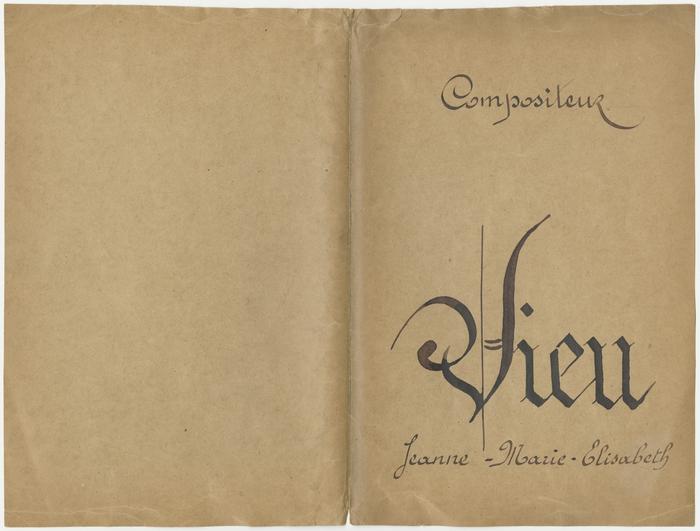 Compositeur
Vieu
Jeanne - Marie - Elisabeth